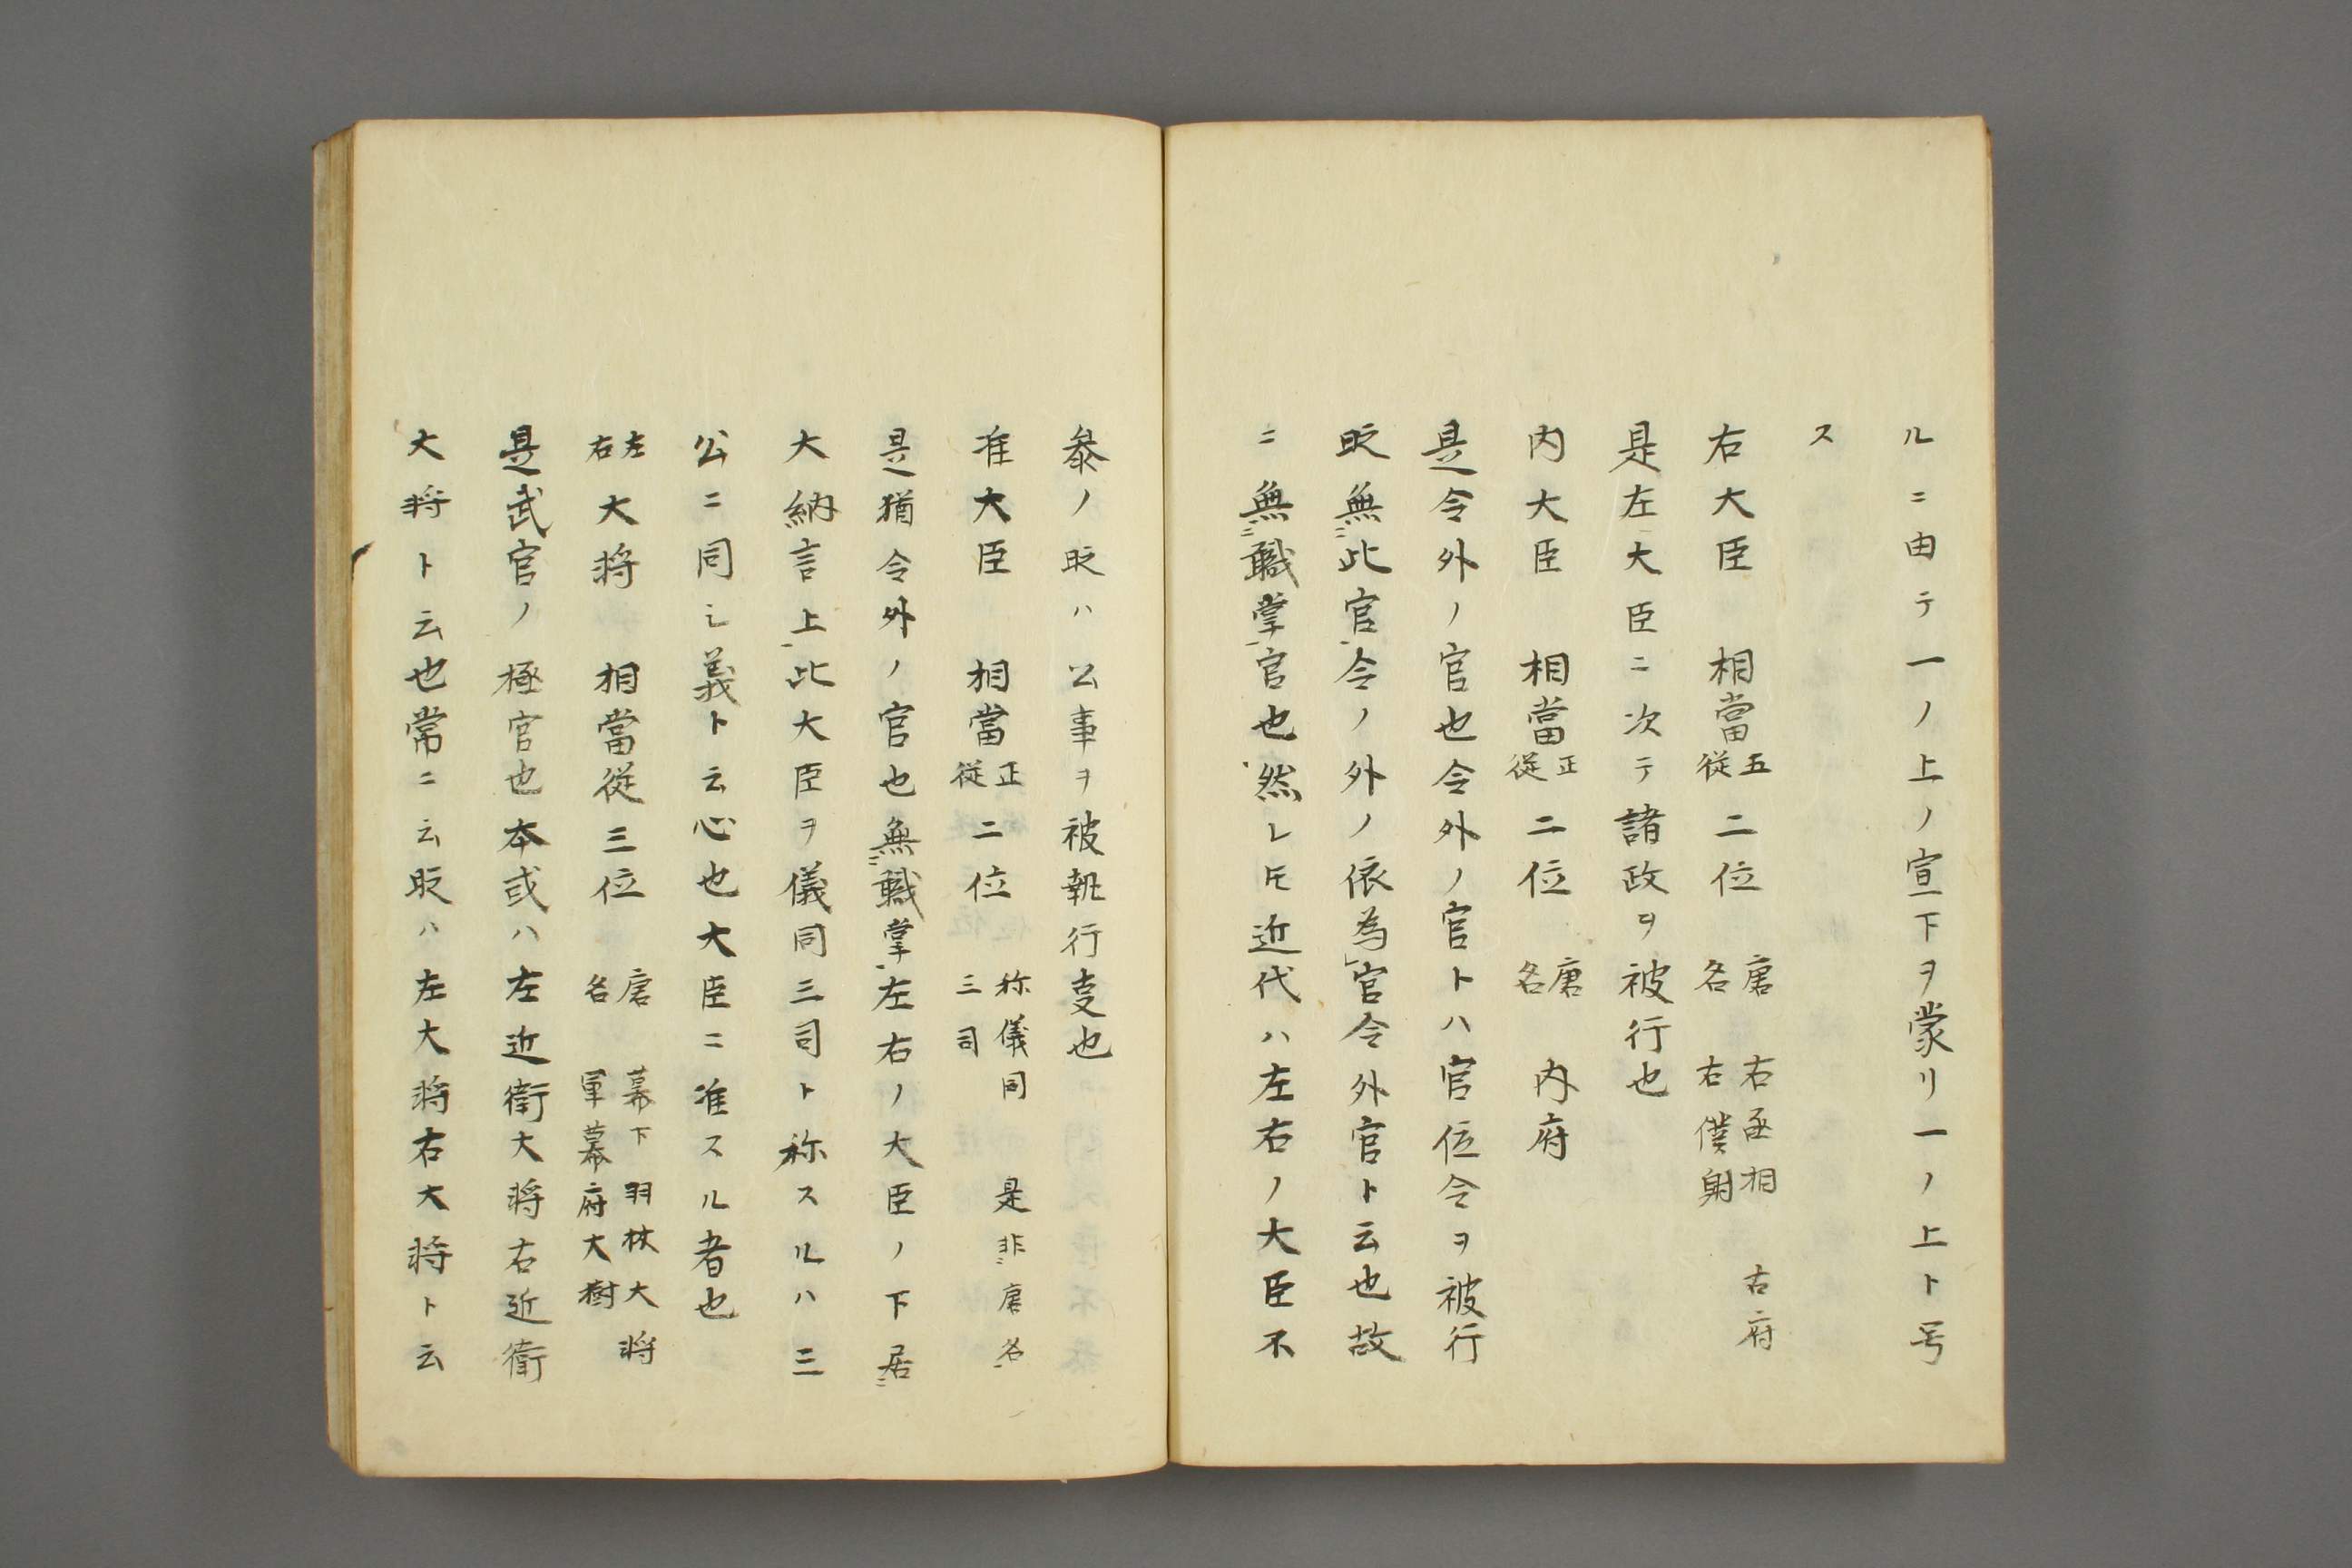 ルニ由テ一ノ上ノ宣下ヲ蒙リ一ノ上ト号
ス
右大臣　相當正従二位　唐名　右丞相　右府　右僕射
是左大臣ニ次テ諸政ヲ被行也
内大臣　相當正従二位　唐名　内府
是令外ノ官也令外ノ官トハ官位令ヲ被行
时無ニ此官一令ノ外ノ依為レ官令外官ト云也故
ニ無ニ職掌一官也然レ𪜈近代ハ左右ノ大臣不
参ノ时ハ公事ヲ被執行叓也
准大臣　相當正従二位　称儀同三司　是非ニ唐名一
是猶令外ノ官也無ニ職掌一左右ノ大臣ノ下居ニ
大納言上一此大臣ヲ儀同三司ト称スルハ三
公ニ同シ義ト云心也大臣ニ准スル者也
左右大将　相當従三位　唐名　幕下羽林大将軍幕府大樹
是武官ノ極官也本或ハ左近衛大将右近衛
大将ト云也常ニ云时ハ左大将右大将ト云